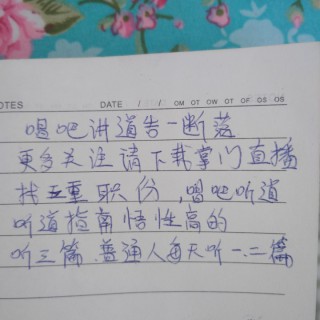 NOTES DATE / / OM OT OW OT OF OS OS
唱吧讲道告一断落
更多关注请下载掌门直播
找五重职份,唱吧听道
听道指南悟性高的
听三篇.普通人每天听一.二篇